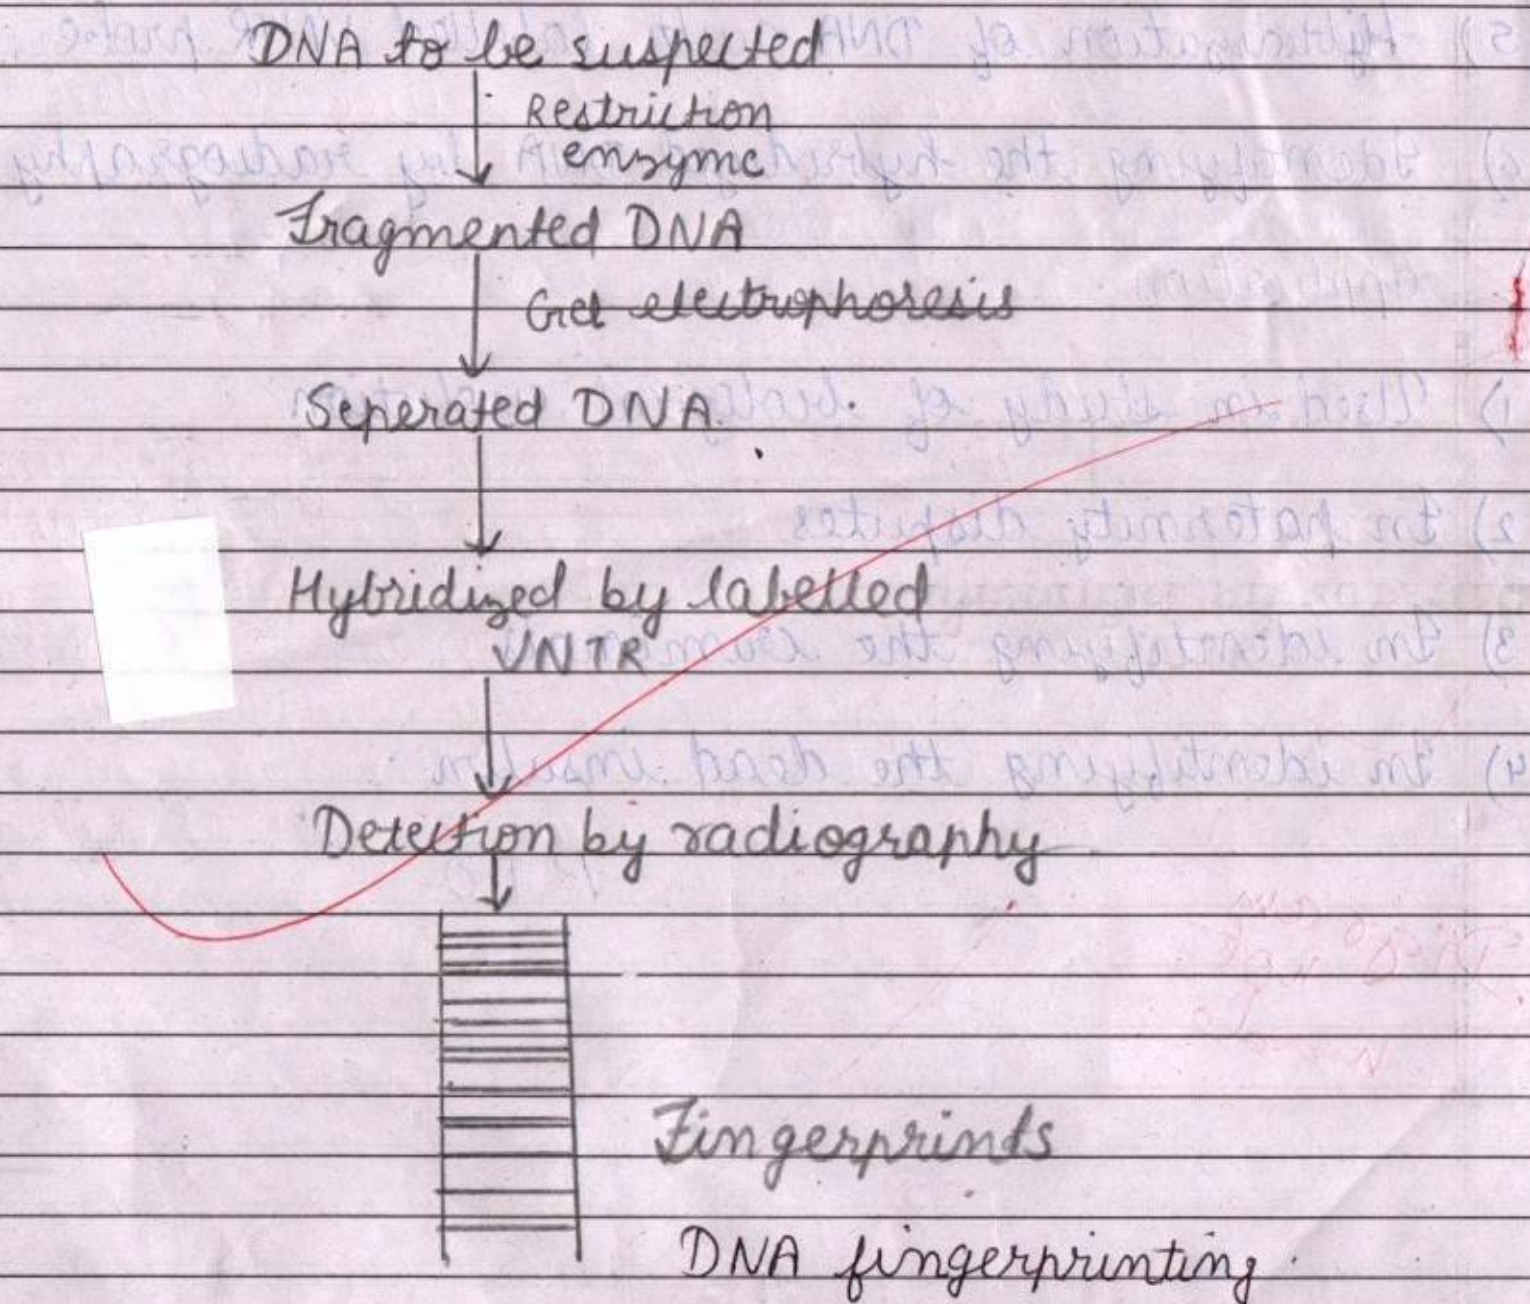 DNA to be suspected
Restriction
enzyme
Fragmented DNA
Gel electrophoresis
Seperated DNA.
Hybridized by labelled
VNTR
Detection by radiography
Fingerprints
DNA fingerprinting.